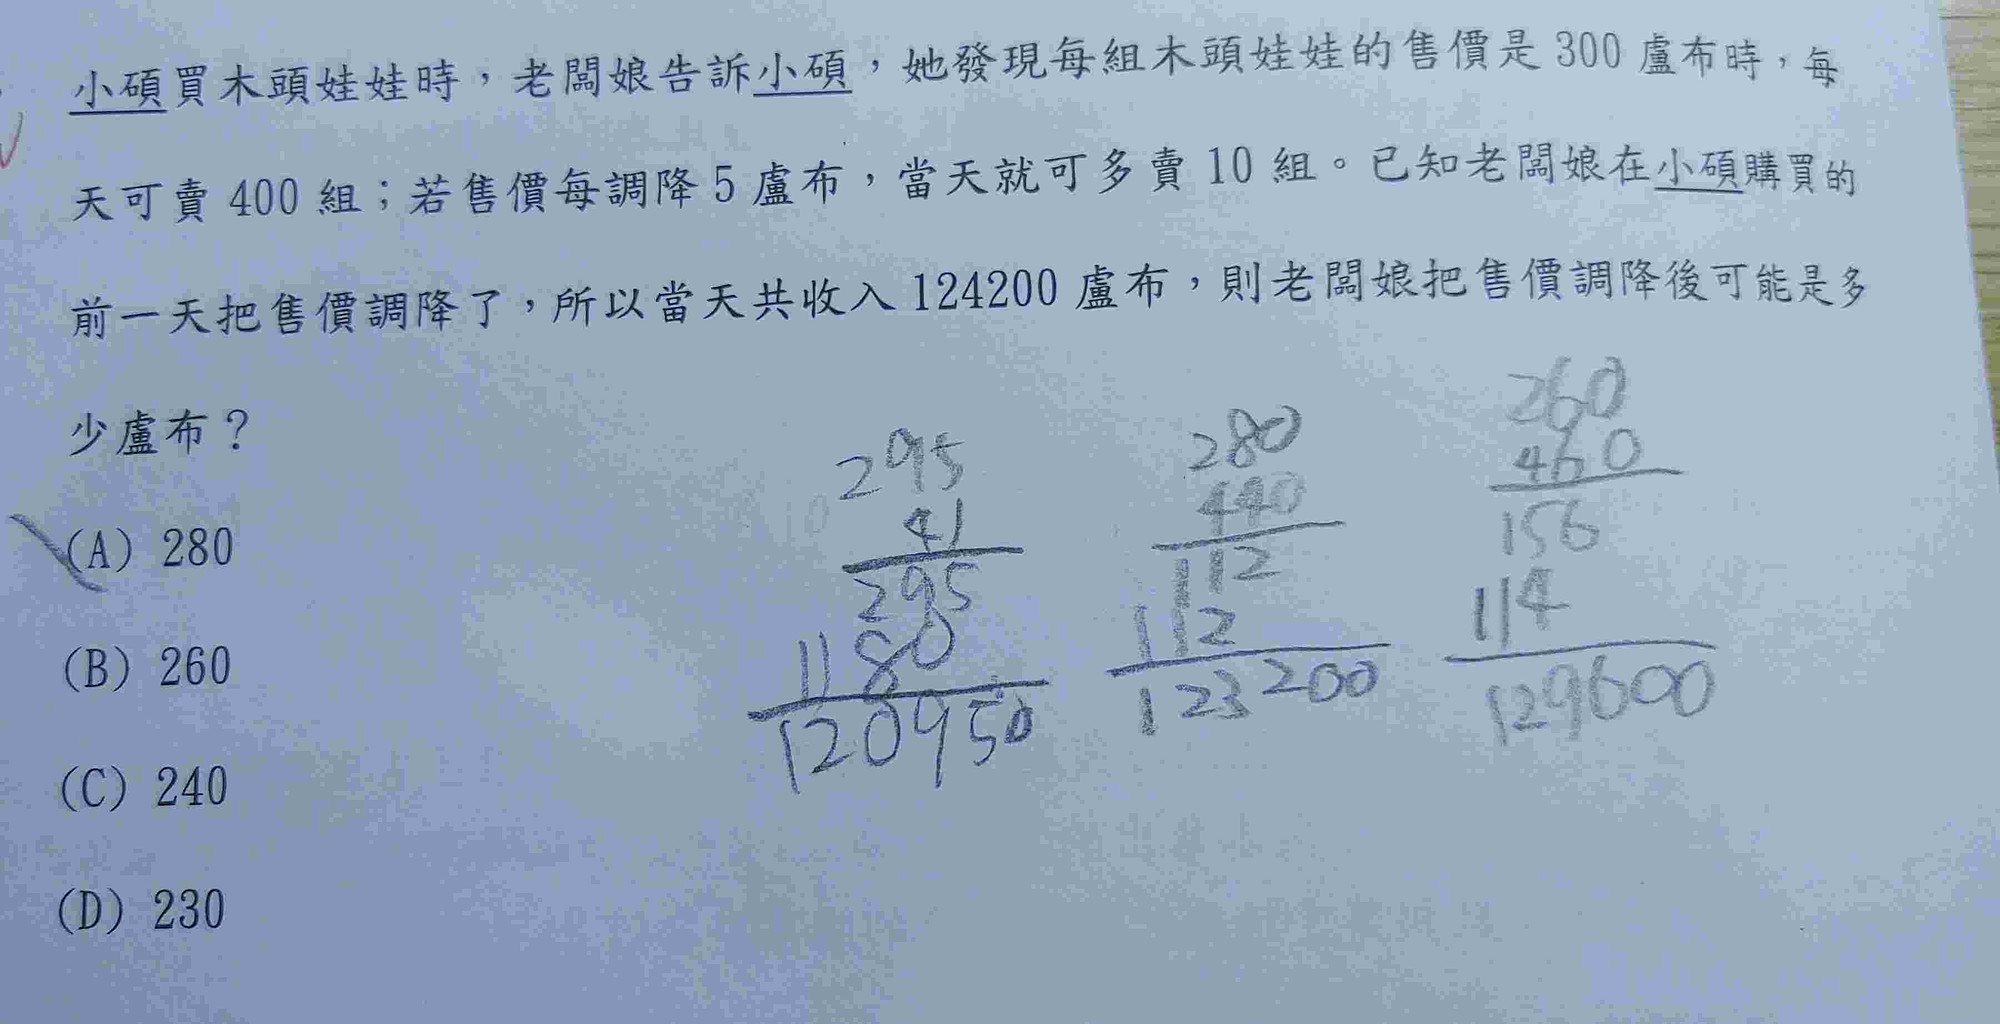 小碩買木頭娃娃時，老闆娘告訴小碩，她發現每組木頭娃娃的售價是 300 盧布時，每
天可賣 400 組；若售價每調降 5 盧布，當天就可多賣 10 組。已知老闆娘在小碩購買的
前一天把售價調降了，所以當天共收入 124200 盧布，則老闆娘把售價調降後可能是多
少盧布？
(A) 280
(B) 260
(C) 240
(D) 230
295
41
295
1180
120950
280
440
112
112
123200
260
460
156
114
129600